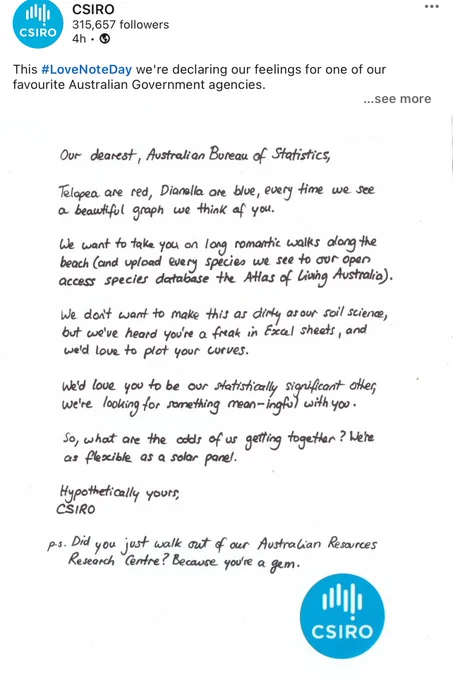 CSIRO
CSIRO
315,657 followers
4h •
This #LoveNoteDay we're declaring our feelings for one of our
favourite Australian Government agencies.
...see more
Our dearest, Australian Bureau of Statistics,
Telopea are red, Dianella are blue, every time we see
a beautiful graph we think of you.
We want to take you on long romantic walks along the
beach (and upload every species we see to our open
access species database the Atlas of Living Australia).
We don't want to make this as dirty as our soil science,
but we've heard you're a freak in Excel sheets, and
we'd love to plot your curves.
We'd love you to be our statistically significant other,
we're looking for something mean-ingful with you.
So, what are the odds of us getting together? We're
as flexible as a solar panel.
Hypothetically yours,
CSIRO
p.s. Did you just walk out of our Australian Resources
Research Centre? Because you're a gem.
CSIRO